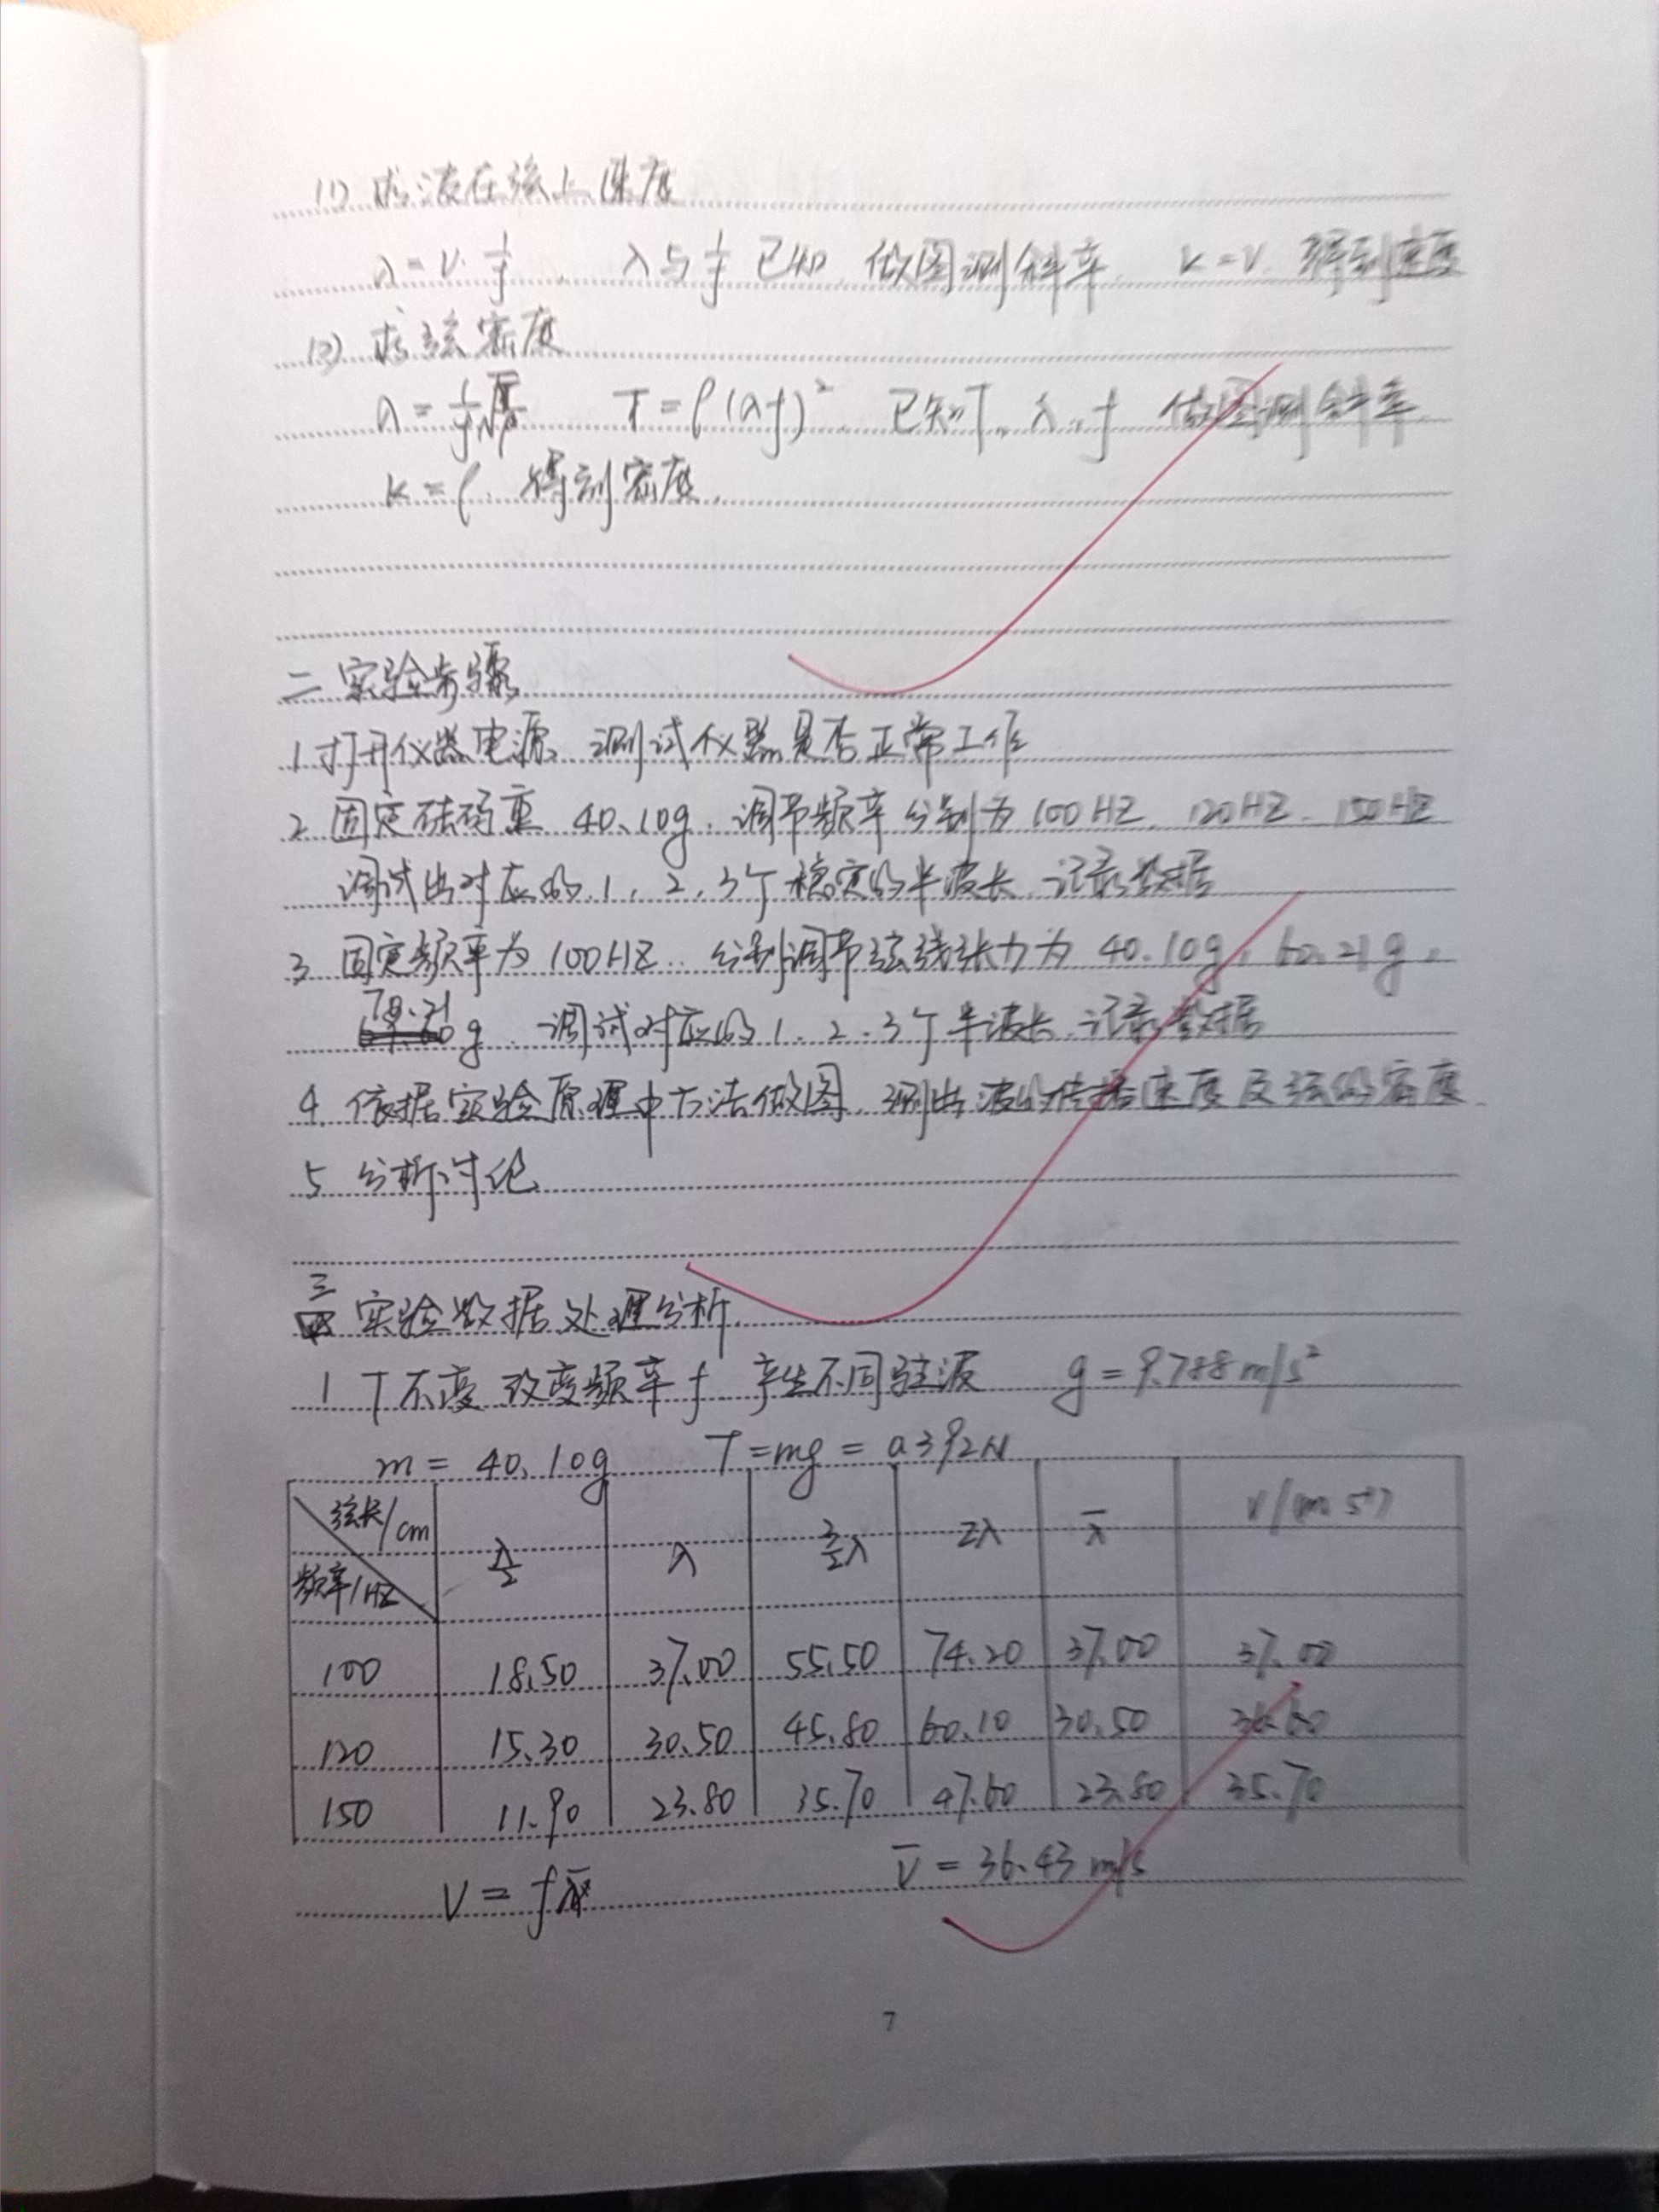 (1) 求波在弦上速度
λ=v·1/f, λ与1/f已知, 做图测斜率, k=v, 得到速度
(2) 求弦密度
λ=1/f√T/ρ T=ρ(λf)², 已知T、λ、f 做图测斜率
k=ρ, 得到密度.
二 实验步骤
1 打开仪器电源, 测试仪器是否正常工作
2 固定砝码重 40.10g, 调节频率分别为100HZ、120HZ、150HZ
调试出对应的1、2、3个稳定的半波长, 记录数据
3 固定频率为100HZ, 分别调节弦线张力为40.10g, 60.21g,
78.21 g, 调试对应的1、2、3个半波长, 记录数据
4. 依据实验原理中方法做图, 测出波的传播速度及弦的密度
5 分析讨论
三 实验数据处理分析.
1 T不变 改变频率f 产生不同驻波 g=9.788m/s²
m = 40.10g T=mg = 0.392N
弦长/cm 频率/HZ λ/2 λ 3/2λ 2λ λ̄ v/(m·s⁻¹)
100 18.50 37.00 55.50 74.20 37.00 37.00
120 15.30 30.50 45.80 60.10 30.50 36.60
150 11.90 23.80 35.70 47.60 23.80 35.70
V = fλ̄ v̄ = 36.43 m/s
7